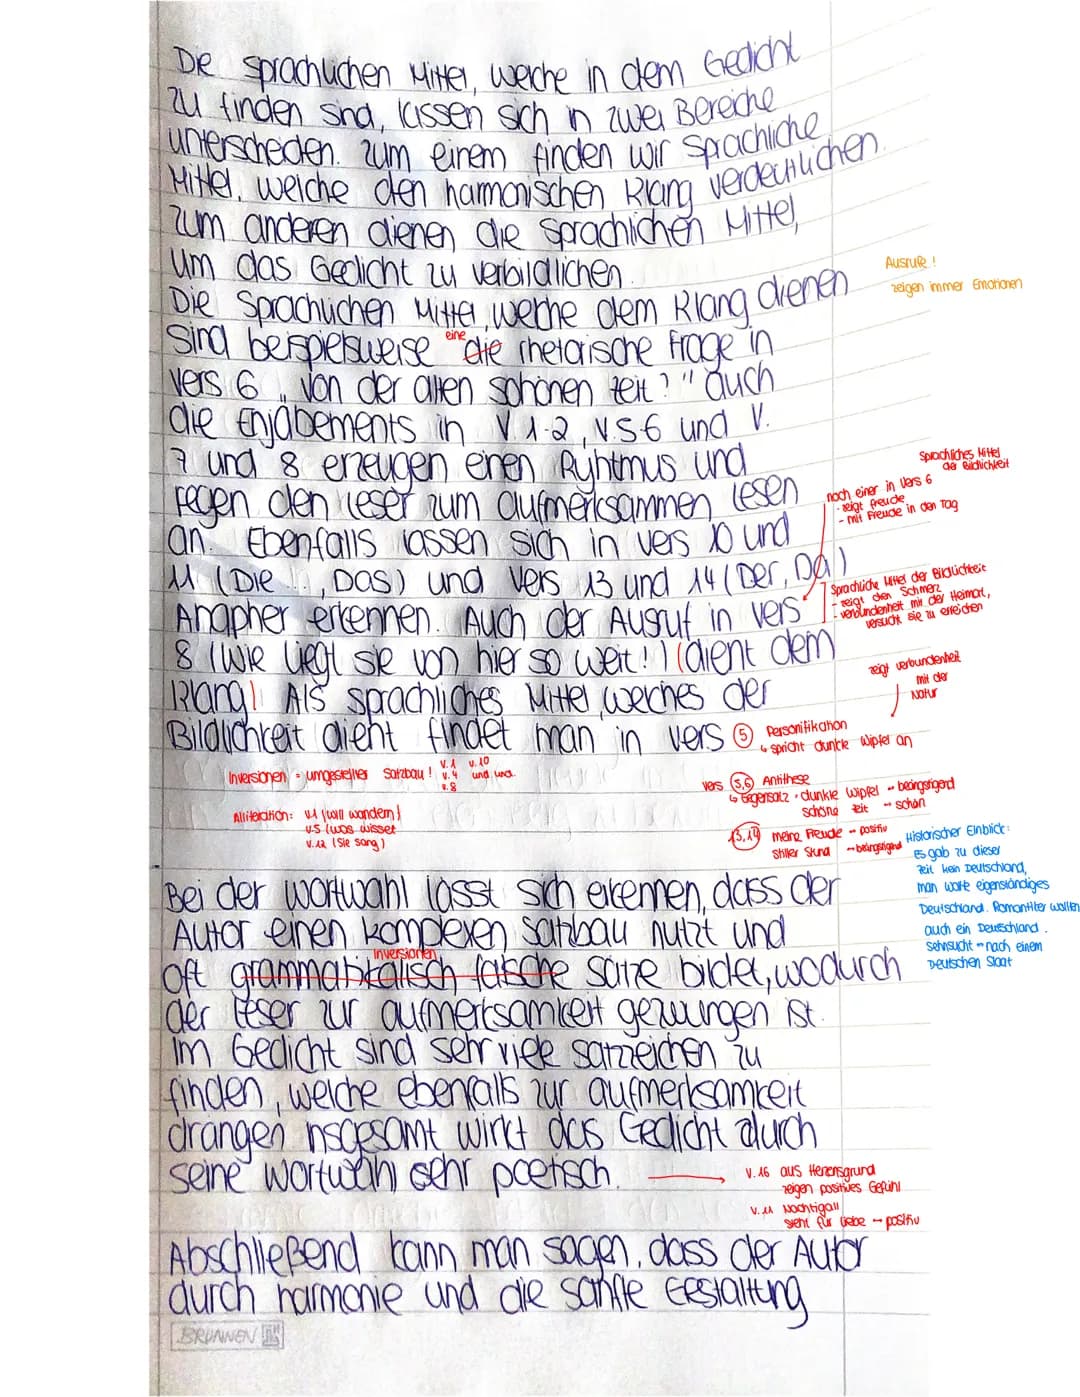 Die sprachlichen Mittel, welche in dem Gedicht
zu finden sind, lassen sich in zwei Bereiche
unterscheden. zum einem finden wir Sprachliche
Mittel, welche den harmonischen Klang verdeutlichen.
zum anderen dienen die sprachlichen Mittel,
um das Gedicht zu verbildlichen.
Ausrufe!
zeigen immer Emotionen
Die Sprachlichen Mittel, welche dem Klang dienen
eine
sind beispielsweise die rhetorische Frage in
vers 6 „Von der alten schönen zeit?" auch
die Enjabements in V.1-2, V.5-6 und V.
7 und 8 erzeugen einen Ryhtmus und
regen den leser zum aufmerksammen lesen
an. Ebenfalls lassen sich in vers 10 und
11 (Die ..., DAS) und vers 13 und 14 (Der, Da)
Anapher erkennen. Auch der Ausruf in vers
8 (Wie liegt sie von hier so weit!) (dient dem
Klang! Als sprachliches Mittel, welches der
Bildlichkeit dient findet man in vers
Sprachliches Mittel
der Bildlichkeit
noch einer in Vers 6
- zeigt freude
- mit Freude in den Tag
Sprachliche Mittel der Bildlichkeit
- zeigt den Schmerz
- verbundenheit mit der Heimat,
versucht sie zu erreichen
zeigt verbundenheit
mit der
Natur
5 Personifikation
↳ spricht dunkle Wipfel an
Inversionen = umgestellter Satzbau! V.1 V.10
V.4 und und
V.8
Vers 5,6 Antithese
↳ Gegensatz • dunkle Wipfel → beängstigend
schöne zeit → schön
13,14 meine Freude → positiv
stiller Stund → beängstigend
Alliteration: V.1 (will wandern)
V.5 (was wisset
V.12 (Sie sang)
Historischer Einblick:
Es gab zu dieser
zeit kein Deutschland,
man wollte eigenständiges
Deutschland. Romantiker wollten
auch ein Deutschland.
Sehnsucht → nach einem
Deutschen Staat
Bei der wortwahl lässt sich erkennen, dass der
Autor einen komplexen satzbau nutzt und
Inversionen
oft grammatikalisch falsche sätze bildet, wodurch
der leser zur aufmerksamkeit gezwungen ist.
Im Gedicht sind sehr viele satzzeichen zu
finden, welche ebenfalls zur aufmerksamkeit
drängen insgesamt wirkt das Gedicht durch
seine wortwahl sehr poetisch.
V.16 aus Herzensgrund
zeigen positives Gefühl
V.11 Nachtigall
steht für liebe → positiv
Abschließend kann man sagen, dass der Autor
durch harmonie und die sanfte Gestaltung
BRUNNEN